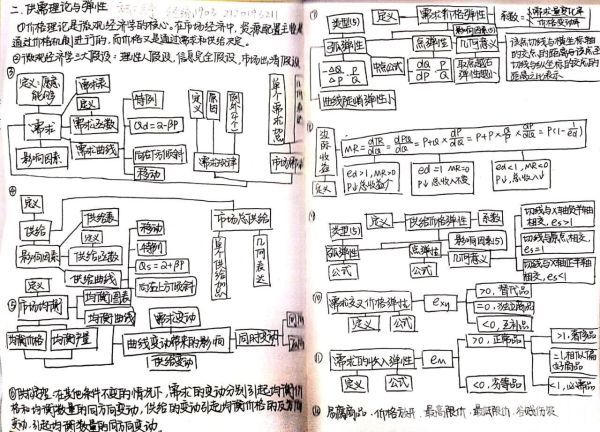 二、供需理论与弹性
①价格理论是微观经济学的核心。在市场经济中，资源配置主要是
通过价格机制进行的，而价格又是通过需求和供给决定。
②微观经济学三大假设：理性人假设、信息完全假设、市场出清假设
③
定义：愿意、能够
需求
影响因素
需求表
定义
需求函数
需求曲线
特例
Qd=α-βP
向右下方倾斜
移动
定义
原因
例外
需求定理
单个需求
市场需求
④
定义
供给
影响因素
供给表
定义
供给函数
供给曲线
移动
特例
Qs=-δ+γP
向右上方倾斜
市场总供给
单个供给
几何表达
⑤市场均衡
均衡价格
均衡产量
均衡图表
均衡曲线
需求变动
曲线变动带来的影响
供给变动
同时变动
⑥供求定理：在其他条件不变的情况下，需求的变动分别引起均衡价
格和均衡数量的同方向变动，供给的变动引起均衡价格的反方向
变动，引起均衡数量的同方向变动。
⑦
类型(5)
定义
需求价格弹性
系数=需求量变化率/价格变动率
影响因素(5)
弧弹性
点弹性
几何意义
-ΔQ/ΔP·P/Q
中点公式
dQ/dP·P/Q
曲线陡峭弹性小
⑧
边际收益
定义
MR=dTR/dQ=dPQ/dQ=P+Q·dP/dQ=P+P·Q/P·dP/dQ=P(1-1/ed)
ed>1, MR>0
P↓总收益↑
ed=1 MR=0
P↓总收入不变
ed<1, MR<0
P↓，总收入↓
⑨
类型(5)
定义
供给价格弹性
系数
影响因素(5)
弧弹性
点弹性
几何意义
公式
公式
切线与X轴负半轴相交，es>1
切线与原点相交，es=1
切线与X轴正半轴相交，es<1
⑩
需求交叉价格弹性
exy
定义
公式
>0，替代品
=0，独立商品
<0，互补品
⑪
需求的收入弹性
em
定义
公式
>0，正常品
<0，劣等品
>1，奢侈品
<1，必需品